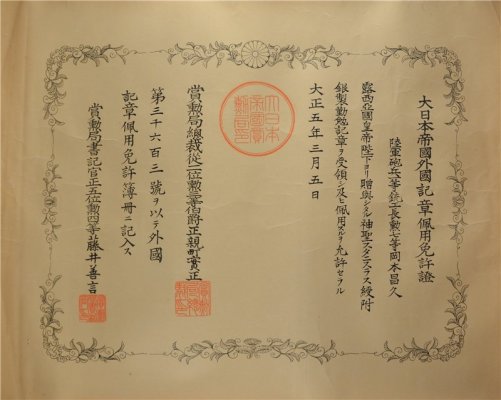 大日本帝國外國記章佩用免許證
陸軍砲兵一等銃工長勲七等岡本昌久
露西亞國皇帝陛下ヨリ贈與シタル神聖スタニスラス綬附
銀製勤勉記章ヲ受領シ及ヒ佩用スルヲ允許セラル
大正五年三月五日
賞勲局總裁從二位勲一等伯爵正親町實正
第三千六百三號ヲ以テ外國
記章佩用免許簿冊ニ記入ス
賞勲局書記官正五位勲四等藤井善言
大日本
帝國賞
勲局印